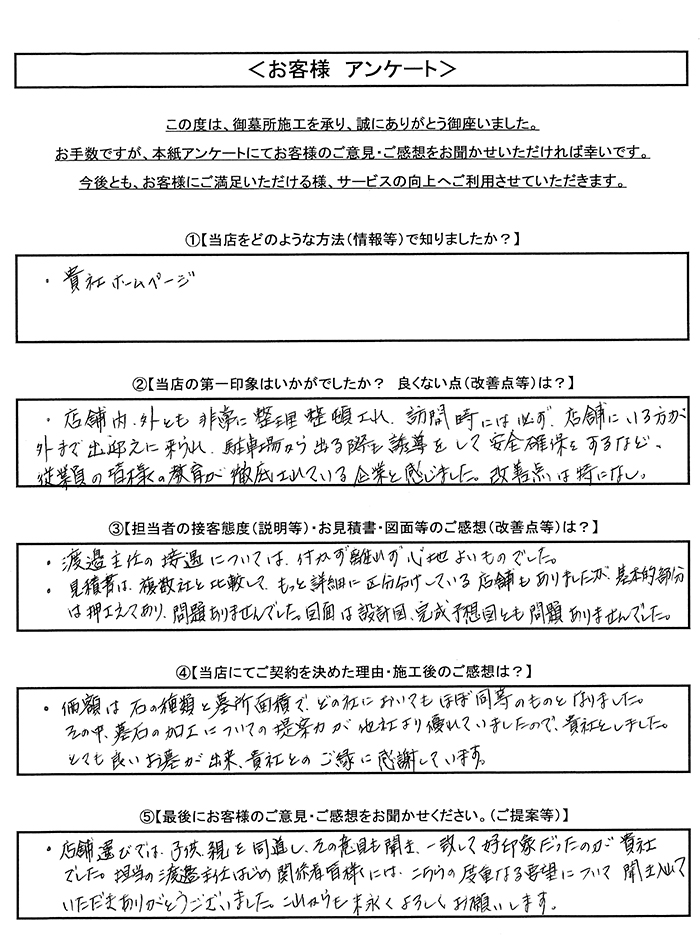 ＜お客様 アンケート＞
この度は、御墓所施工を承り、誠にありがとう御座いました。
お手数ですが、本紙アンケートにてお客様のご意見・ご感想をお聞かせいただければ幸いです。
今後とも、お客様にご満足いただける様、サービスの向上へご利用させていただきます。
①【当店をどのような方法（情報等）で知りましたか？】
・貴社ホームページ
②【当店の第一印象はいかがでしたか？ 良くない点（改善点等）は？】
・店舗内、外とも非常に整理整頓され、訪問時には必ず、店舗にいる方が
外まで出迎えに来られ、駐車場から出る際も誘導をして安全確保をするなど、
従業員の皆様の教育が徹底されている企業と感じました。改善点は特になし。
③【担当者の接客態度（説明等）・お見積書・図面等のご感想（改善点等）は？】
・渡邉主任の接遇については、付かず離れず心地よいものでした。
・見積書は、複数社と比較して、もっと詳細に区分分けしている店舗もありましたが、基本的部分
は押さえてあり、問題ありませんでした。図面は設計図、完成予想図とも問題ありませんでした。
④【当店にてご契約を決めた理由・施工後のご感想は？】
・価額は石の種類と墓所面積で、どの社においてもほぼ同等のものとなりました。
その中、墓石の加工についての提案力が他社より優れていましたので、貴社としました。
とても良いお墓が出来、貴社とのご縁に感謝しています。
⑤【最後にお客様のご意見・ご感想をお聞かせください。（ご提案等）】
・店舗選びでは、子供、親を同道し、その意見も聞き、一致して好印象だったのが貴社
でした。担当の渡邉主任はじめ関係者皆様には、こちらの度重なる要望について聞き入れて
いただきありがとうございました。これからも末永くよろしくお願いします。